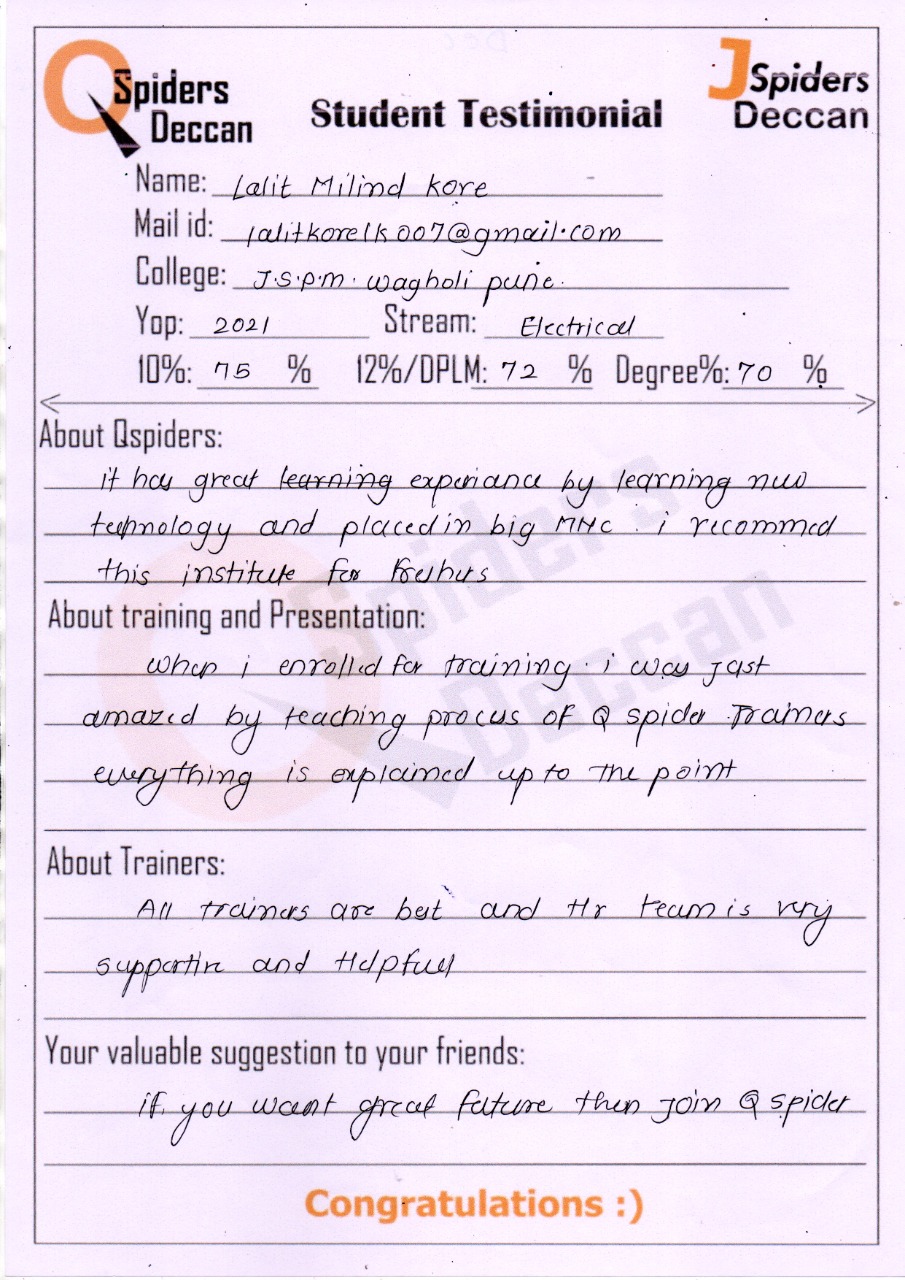 QSpiders Deccan
Student Testimonial
JSpiders Deccan
Name: Lalit Milind Kore
Mail id: lalitkorelk007@gmail.com
College: J.S.P.M. wagholi pune.
Yop: 2021 Stream: Electrical
10%: 75 % 12%/DPLM: 72 % Degree%: 70 %
About Qspiders:
it has great learning experiance by learning new
technology and placed in big MNC . i recommed
this institute for Freshers
About training and Presentation:
when i enrolled for training. i was jast
amazed by teaching process of Q spider Trainers
everything is explained up to the point
About Trainers:
All trainers are best and Hr team is very
supportive and Helpfull
Your valuable suggestion to your friends:
if you want great future then join Q spider
Congratulations :)